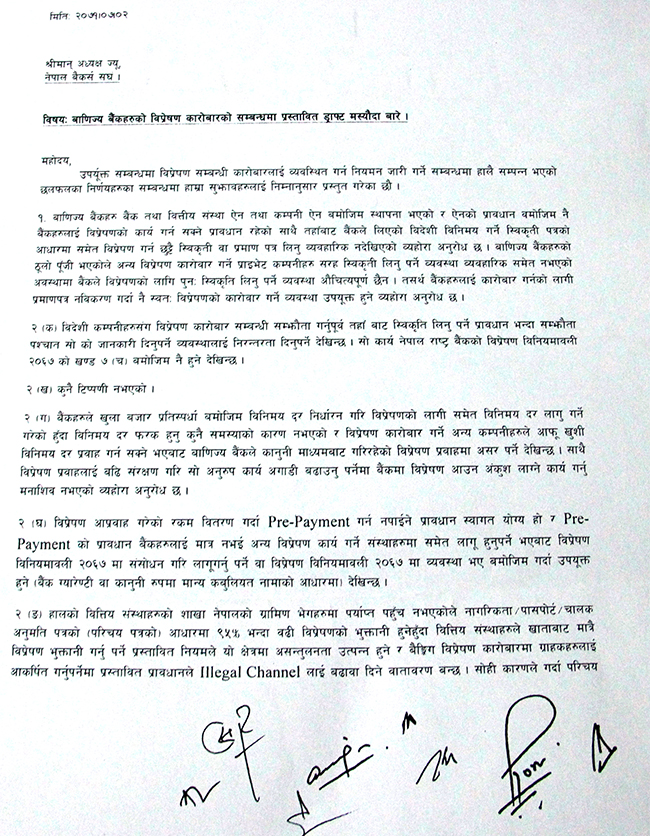 मितिः २०७१०७०२
श्रीमान् अध्यक्ष ज्यू,
नेपाल बैंकर्स संघ ।
विषयः बाणिज्य बैंकहरुको विप्रेषण कारोबारको सम्बन्धमा प्रस्तावित ड्राफ्ट मस्यौदा बारे ।
महोदय,
उपर्युक्त सम्बन्धमा विप्रेषण सम्बन्धी कारोबारलाई व्यवस्थित गर्न नियमन जारी गर्ने सम्बन्धमा हालै सम्पन्न भएको
छलफलका निर्णयहरुका सम्बन्धमा हाम्रा सुझावहरुलाई निम्नानुसार प्रस्तुत गरेका छौ ।
१. बाणिज्य बैंकहरु बैंक तथा वित्तीय संस्था ऐन तथा कम्पनी ऐन बमोजिम स्थापना भएको र ऐनको प्रावधान बमोजिम नै
बैंकहरुलाई विप्रेषणको कार्य गर्न सक्ने प्रावधान रहेको साथै तहाँबाट बैंकले लिएको विदेशी विनिमय गर्ने स्विकृती पत्रको
आधारमा समेत विप्रेषण गर्न छुट्टै स्विकृती वा प्रमाण पत्र लिनु व्यवहारिक नदेखीएको व्यहोरा अनुरोध छ । बाणिज्य बैंकहरुको
ठूलो पूंजी भएकोले अन्य विप्रेषण कारोबार गर्ने प्राइभेट कम्पनीहरु सरह स्विकृती लिनु पर्ने व्यवस्था व्यवहारिक समेत नभएको
अवस्थामा बैंकले विप्रेषणको लागि पुनः स्विकृति लिनु पर्ने व्यवस्था औचित्यपूर्ण छैन । तसर्थ बैंकहरुलाई कारोबार गर्नको लागी
प्रमाणपत्र नविकरण गर्दा नै स्वतः विप्रेषणको कारोबार गर्ने व्यवस्था उपयूक्त हुने व्यहोरा अनुरोध छ ।
२ (क) विदेशी कम्पनीहरुसंग विप्रेषण कारोबार सम्बन्धी सम्झौता गर्नुपूर्व तहाँ बाट स्विकृति लिनु पर्ने प्रावधान भन्दा सम्झौता
पश्चात सो को जानकारी दिनुपर्ने व्यवस्थालाई निरन्तरता दिनुपर्ने देखिन्छ । सो कार्य नेपाल राष्ट्र बैंकको विप्रेषण विनियमावली
२०६७ को खण्ड ७ (च) बमोजिम नै हुने देखिन्छ ।
२ (ख) कुनै टिप्पणी नभएको ।
२ (ग) बैंकहरुले खुला बजार प्रतिस्पर्धा बमोजिम विनिमय दर निर्धारन गरि विप्रेषणको लागी समेत विनिमय दर लागु गर्ने
गरेको हुँदा विनिमय दर फरक हुनु कुनै समस्याको कारण नभएको र विप्रेषण कारोबार गर्ने अन्य कम्पनीहरुले आफू खुशी
विनिमय दर प्रवाह गर्न सक्ने भएबाट बाणिज्य बैंकले कानुनी माध्यमबाट गरिरहेको विप्रेषण प्रवाहमा असर पर्ने देखिन्छ । साथै
विप्रेषण प्रवाहलाई बढि संरक्षण गरि सो अनुरुप कार्य अगाडी बढाउनु पर्नेमा बैंकमा विप्रेषण आउन अंकुश लाग्ने कार्य गर्नु
मनाशिव नभएको व्यहोरा अनुरोध छ ।
२ (घ) विप्रेषण आप्रवाह गरेको रकम वितरण गर्दा Pre-Payment गर्न नपाईने प्रावधान स्वागत योग्य हो र Pre-
Payment को प्रावधान बैंकहरुलाई मात्र नभई अन्य विप्रेषण कार्य गर्ने संस्थाहरुमा समेत लागू हुनुपर्ने भएबाट विप्रेषण
विनियमावली २०६७ मा संसोधन गरि लागूगर्नु पर्ने वा विप्रेषण विनियमावली २०६७ मा व्यवस्था भए बमोजिम गर्दा उपयूक्त
हुने (बैंक ग्यारेण्टी वा कानुनी रुपमा मान्य कबुलियत नामाको आधारमा) देखिन्छ ।
२ (ङ) हालको वित्तिय संस्थाहरुको शाखा नेपालको ग्रामिण भेगहरुमा पर्याप्त पहुँच नभएकोले नागरिकता/पासपोर्ट/चालक
अनुमति पत्रको (परिचय पत्रको) आधारमा ९५% भन्दा वढी विप्रेषणको भुक्तानी हुनेहुँदा वित्तिय संस्थाहरुले खाताबाट मात्रै
विप्रेषण भुक्तानी गर्नु पर्ने प्रस्तावित नियमले यो क्षेत्रमा असन्तुलनता उत्पन्न हुने र बैङ्किंग विप्रेषण कारोबारमा ग्राहकहरुलाई
आकर्षित गर्नुपर्नेमा प्रस्तावित प्रावधानले Illegal Channel लाई बढावा दिने वातावरण बन्छ । सोही कारणले गर्दा परिचय